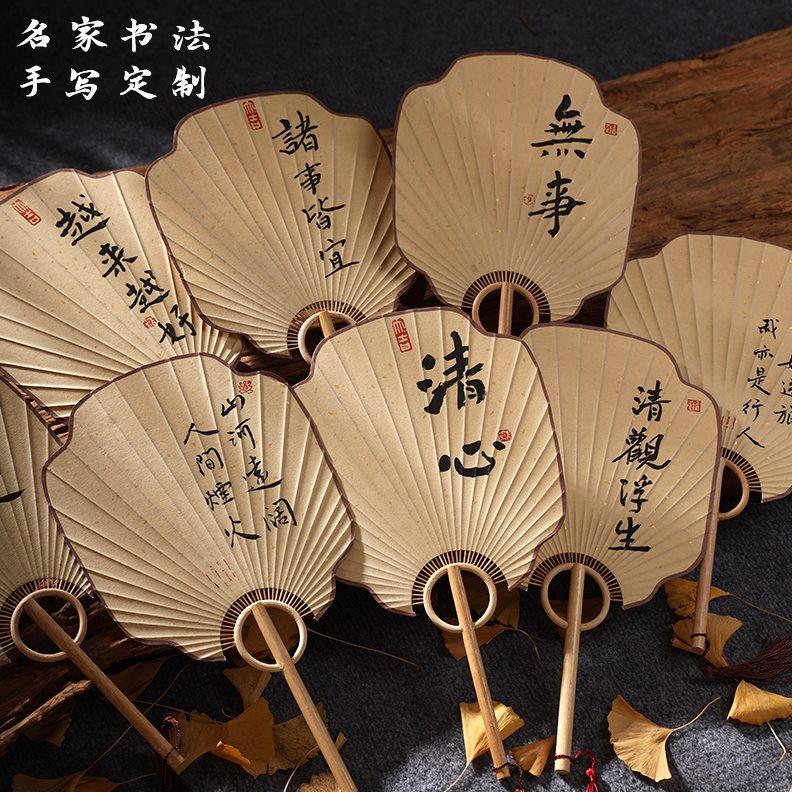 名家书法
手写定制
越来越好
諸事皆宜
無事
我亦是行人
山河遠阔
人間煙火
清心
清觀浮生